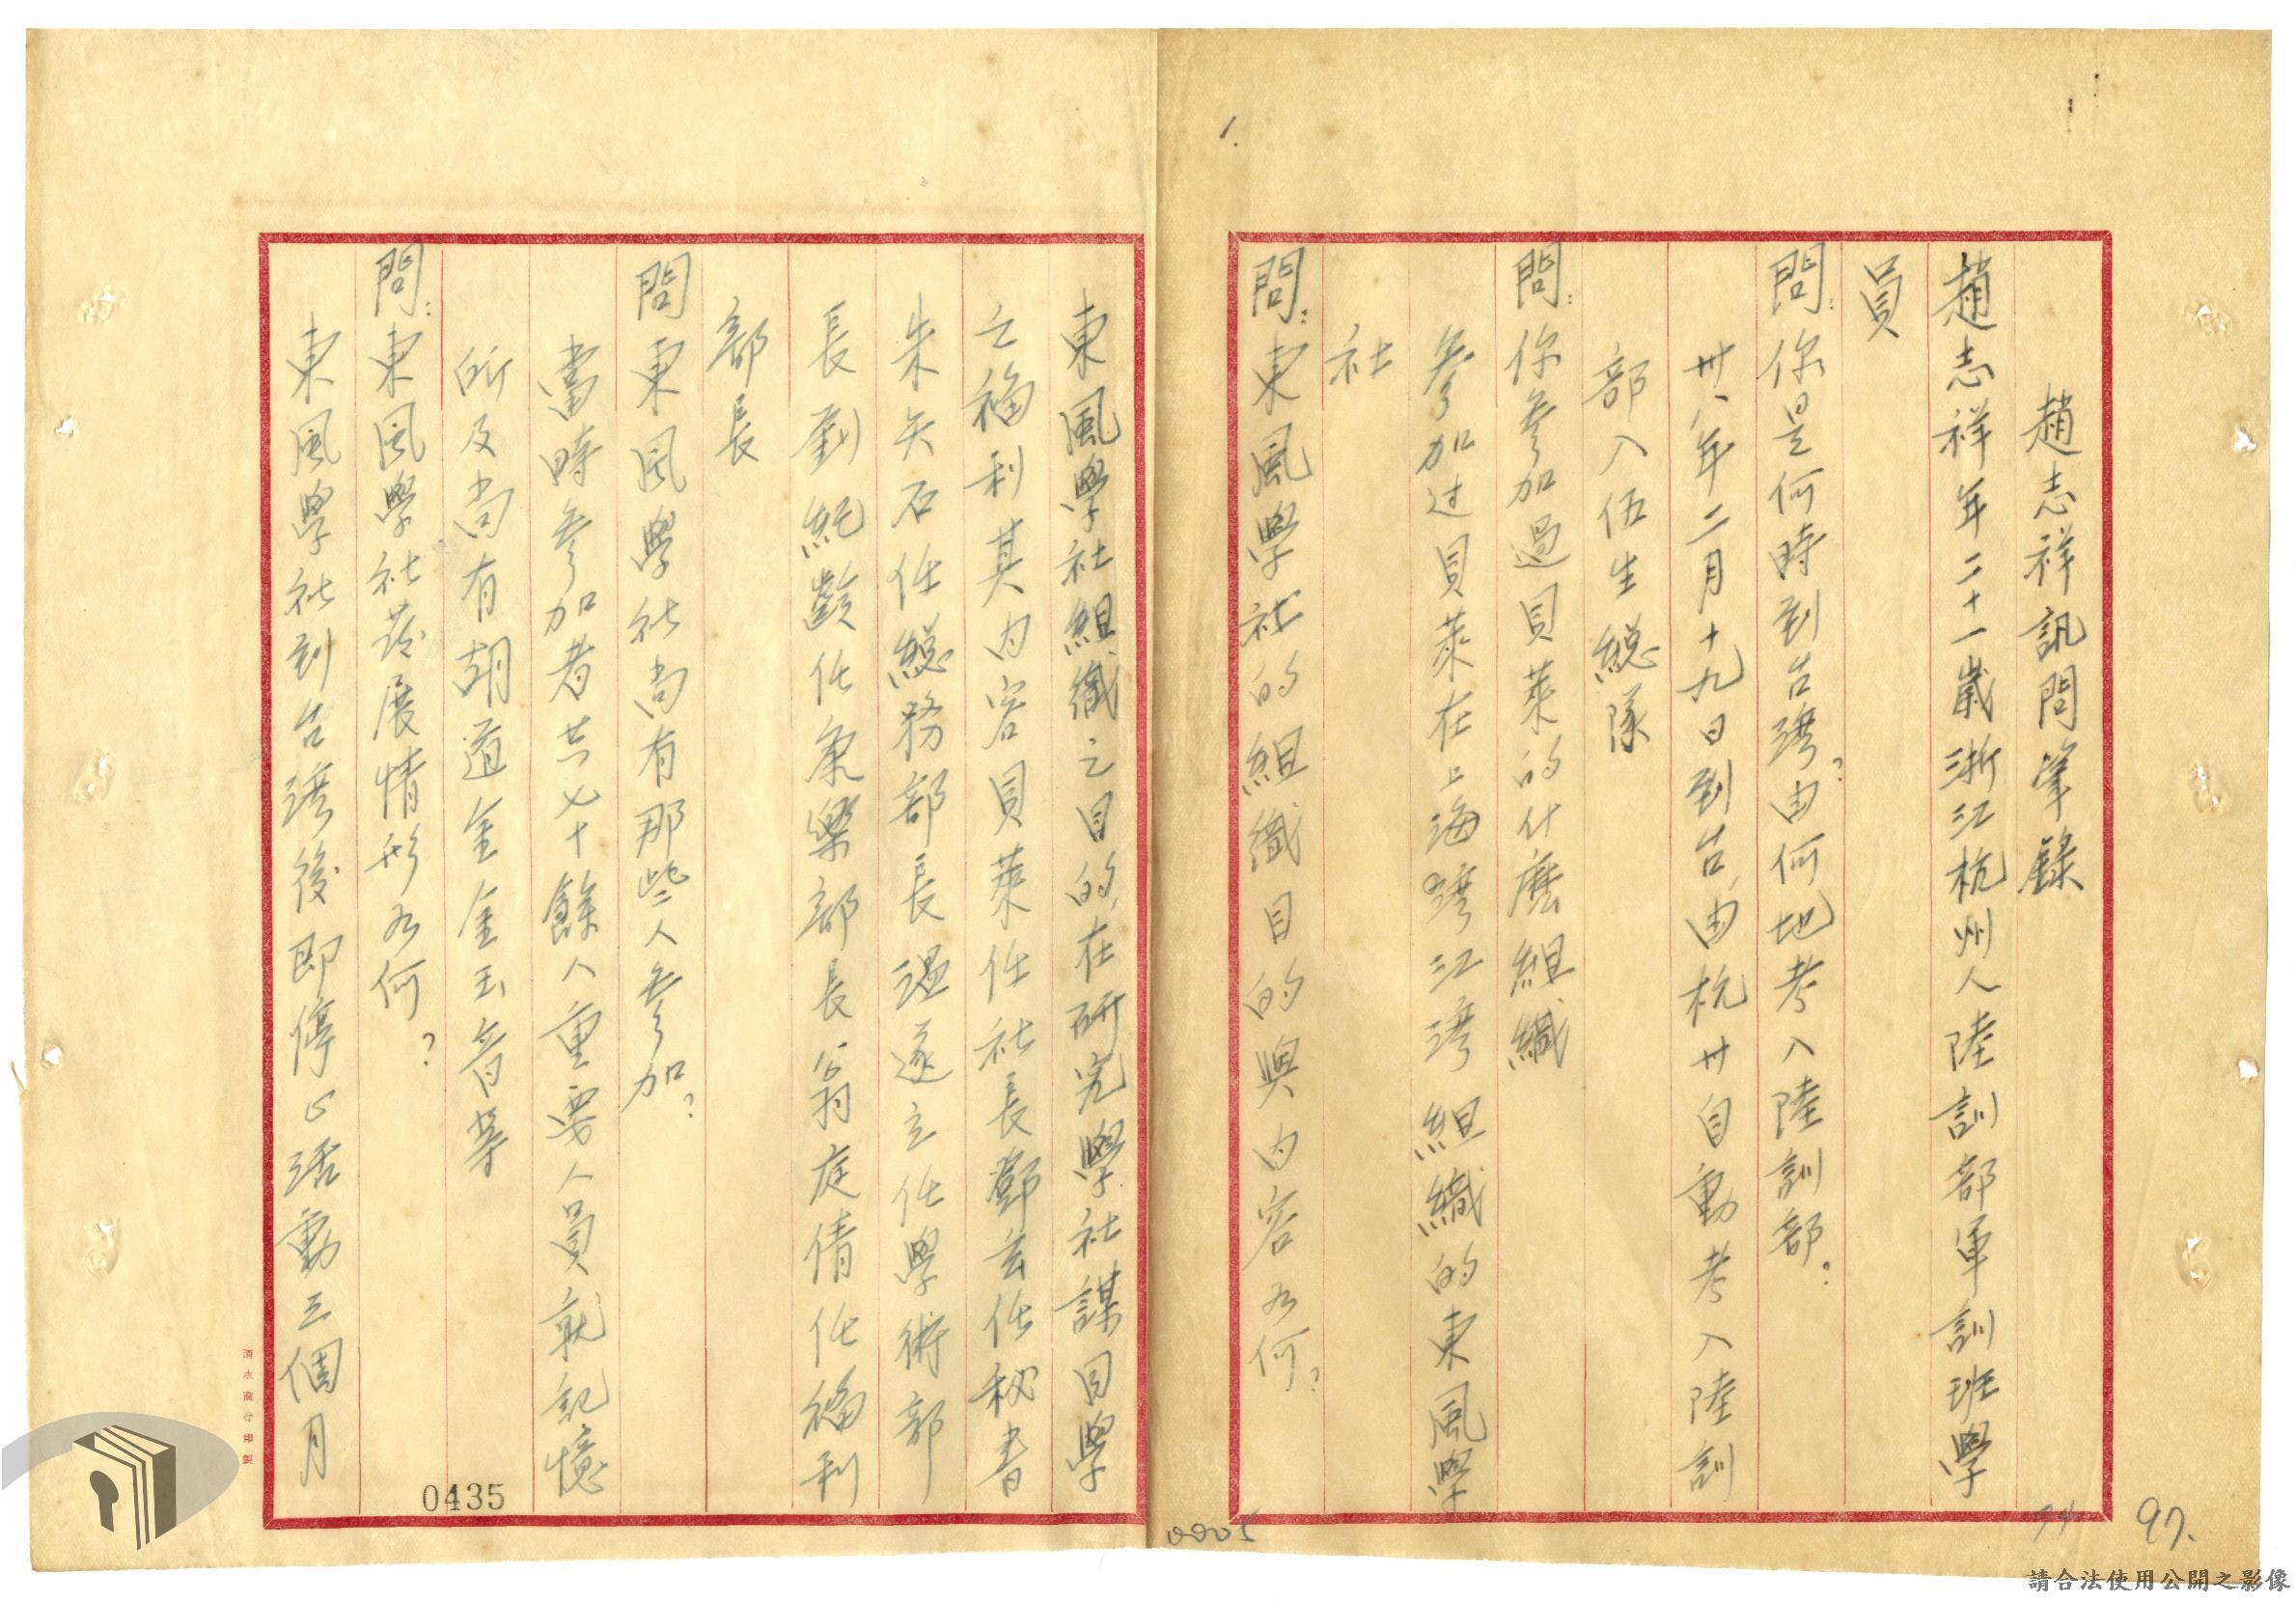 趙志祥訊問筆錄
趙志祥年二十一歲浙江杭州人陸訓部軍訓班學
員
問：你是何時到台灣？由何地考入陸訓部？
卅八年二月十九日到台，由杭州自動考入陸訓
部入伍生總隊
問：你參加過貝萊的什麼組織
參加过貝萊在上海灣江灣組織的東風學
社
問：東風學社的組織目的與內容為何？
東風學社組織之目的，在研究學社謀同學
之福利其內容貝萊任社長鄧玄任秘書
朱矢石任總務部長遐遂立任學術部
長劉純齡任康樂部長翁庭倩任福利
部長
問東風學社尚有那些人參加？
當時參加者共七十餘人重要人員就記憶
所及尚有胡道全金玉音等
問：東風學社發展情形為何？
東風學社到台灣後即停止活動三個月
1.
97.
0005
0435
清水商行印製
請合法使用公開之影像